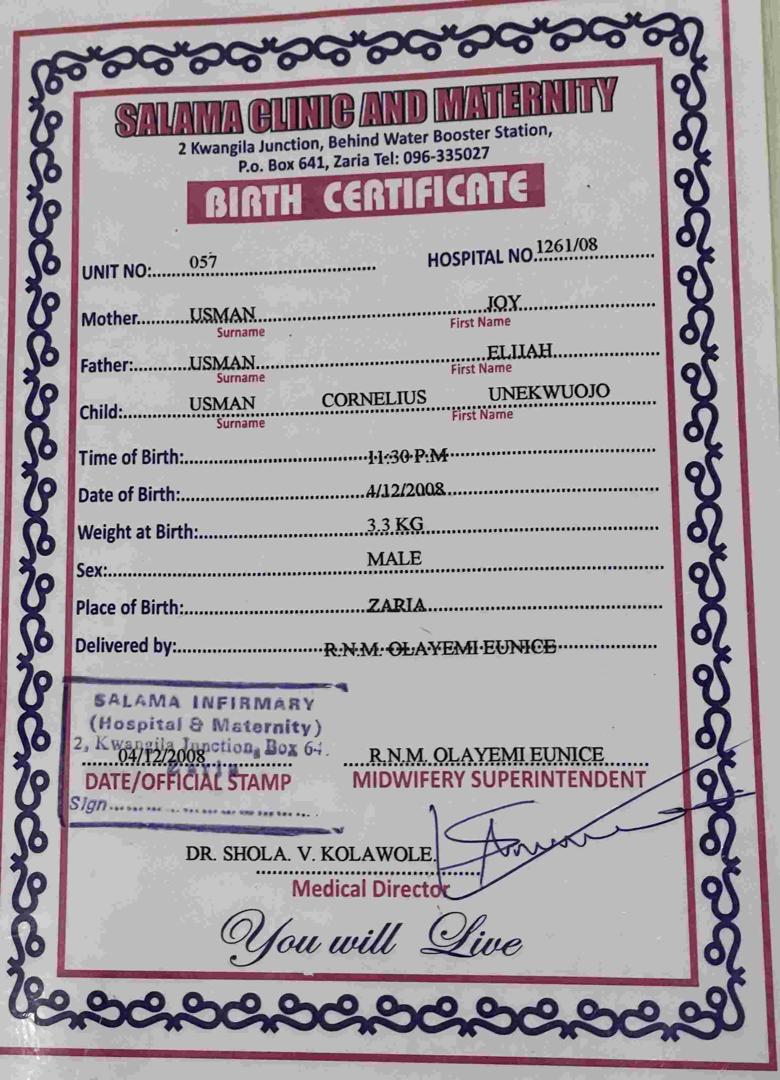 SALAMA CLINIC AND MATERNITY
2 Kwangila Junction, Behind Water Booster Station,
P.o. Box 641, Zaria Tel: 096-335027
BIRTH CERTIFICATE
UNIT NO:......057...... HOSPITAL NO.1261/08
Mother......USMAN JOY
Surname First Name
Father:......USMAN ELIJAH
Surname First Name
Child:......USMAN CORNELIUS UNEKWUOJO
Surname First Name
Time of Birth:......11:30 P.M
Date of Birth:......4/12/2008
Weight at Birth:......3.3 KG
Sex:......MALE
Place of Birth:......ZARIA
Delivered by:......R.N.M. OLAYEMI EUNICE
SALAMA INFIRMARY
(Hospital & Maternity)
2, Kwangila Junction, Box 64.
Zaria
04/12/2008 R.N.M. OLAYEMI EUNICE
DATE/OFFICIAL STAMP MIDWIFERY SUPERINTENDENT
Sign......
DR. SHOLA. V. KOLAWOLE.
Medical Director
You will Live